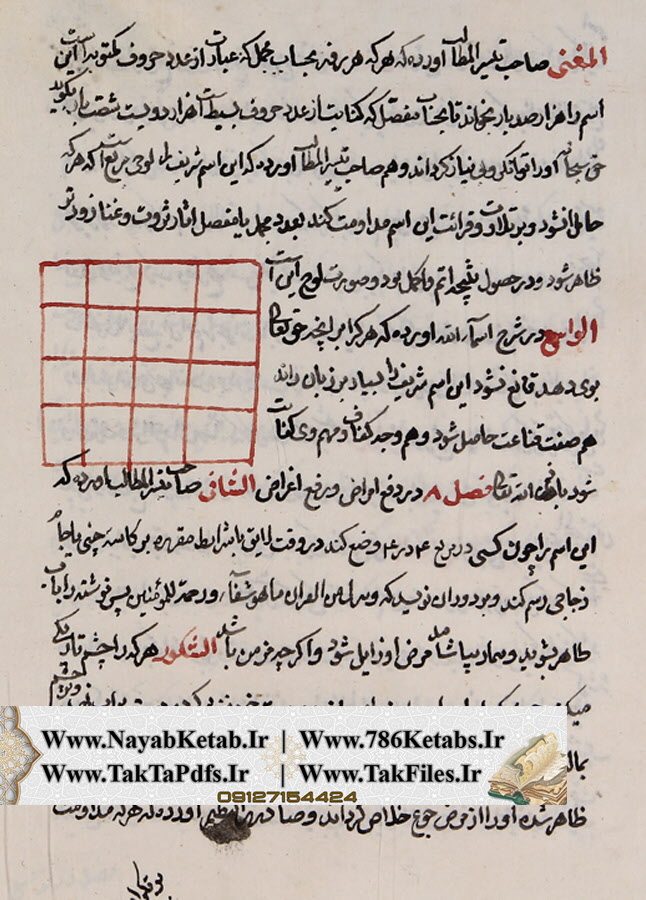 المغنی صاحب تیسیر المطالب آورده که هرکه هر روز بحساب مجمل که عبارت از عدد حروف مکتوبه است این
اسم را هزار صد بار بخواند تا بحساب مفصل که کنایت از عدد حروف بسیط است هزار دویست شصت بار بگوید
حق سبحانه او را توانگر و بی نیاز گرداند و هم صاحب تیسیر المطالب آورده که این اسم شریف را لوحی مربع است که هرکه
حامل شود و بر تلاوت و قرائت این اسم مداومت کند بعدد مجمل یا مفصل اثار ثروت و غنا زودتر
ظاهر شود و در حصول نتیجه اتم و اکمل بود و صورت لوح این است
الواسع در شرح اسماء الله آورده که هرکرا بر آنچه حق تعالی
بوی دهد قانع نشود این اسم شریف را بسیار بر زبان راند
هم صفت قناعت حاصل شود و هم وجه کفاف و مهم وی کفایت
شود باذن الله تعالی فصل ۸ در دفع امراض و رفع اغراض الشافی صاحب تیسیر المطالب آورده که
این اسم را چون کسی در مربع ۴ در ۴ وضع کند در وقت لایق با شرایط مقرره بر کاسه چینی یا جام
زجاجی رسم کند و بر دوران نویسد که و ننزل من القران ما هو شفاء و رحمة للمؤمنین پس نوشته را باب
طاهر بشوید و بیمار بیاشامد مرض او زایل شود و اگرچه مزمن باشد الشکور هرکه را چشم تاریکی
میکند
Www.NayabKetab.Ir | Www.786Ketabs.Ir
Www.TakTaPdfs.Ir | Www.TakFiles.Ir
09127154424
ظاهر شده او را از مرض جوع خلاص گرداند و صاحب آورده که هرکه مداومت